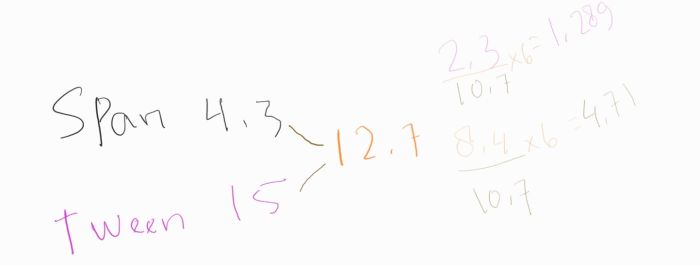 Span 4.3
Tween 15
12.7
2.3/10.7 x6=1.289
8.4/10.7 x6=4.71